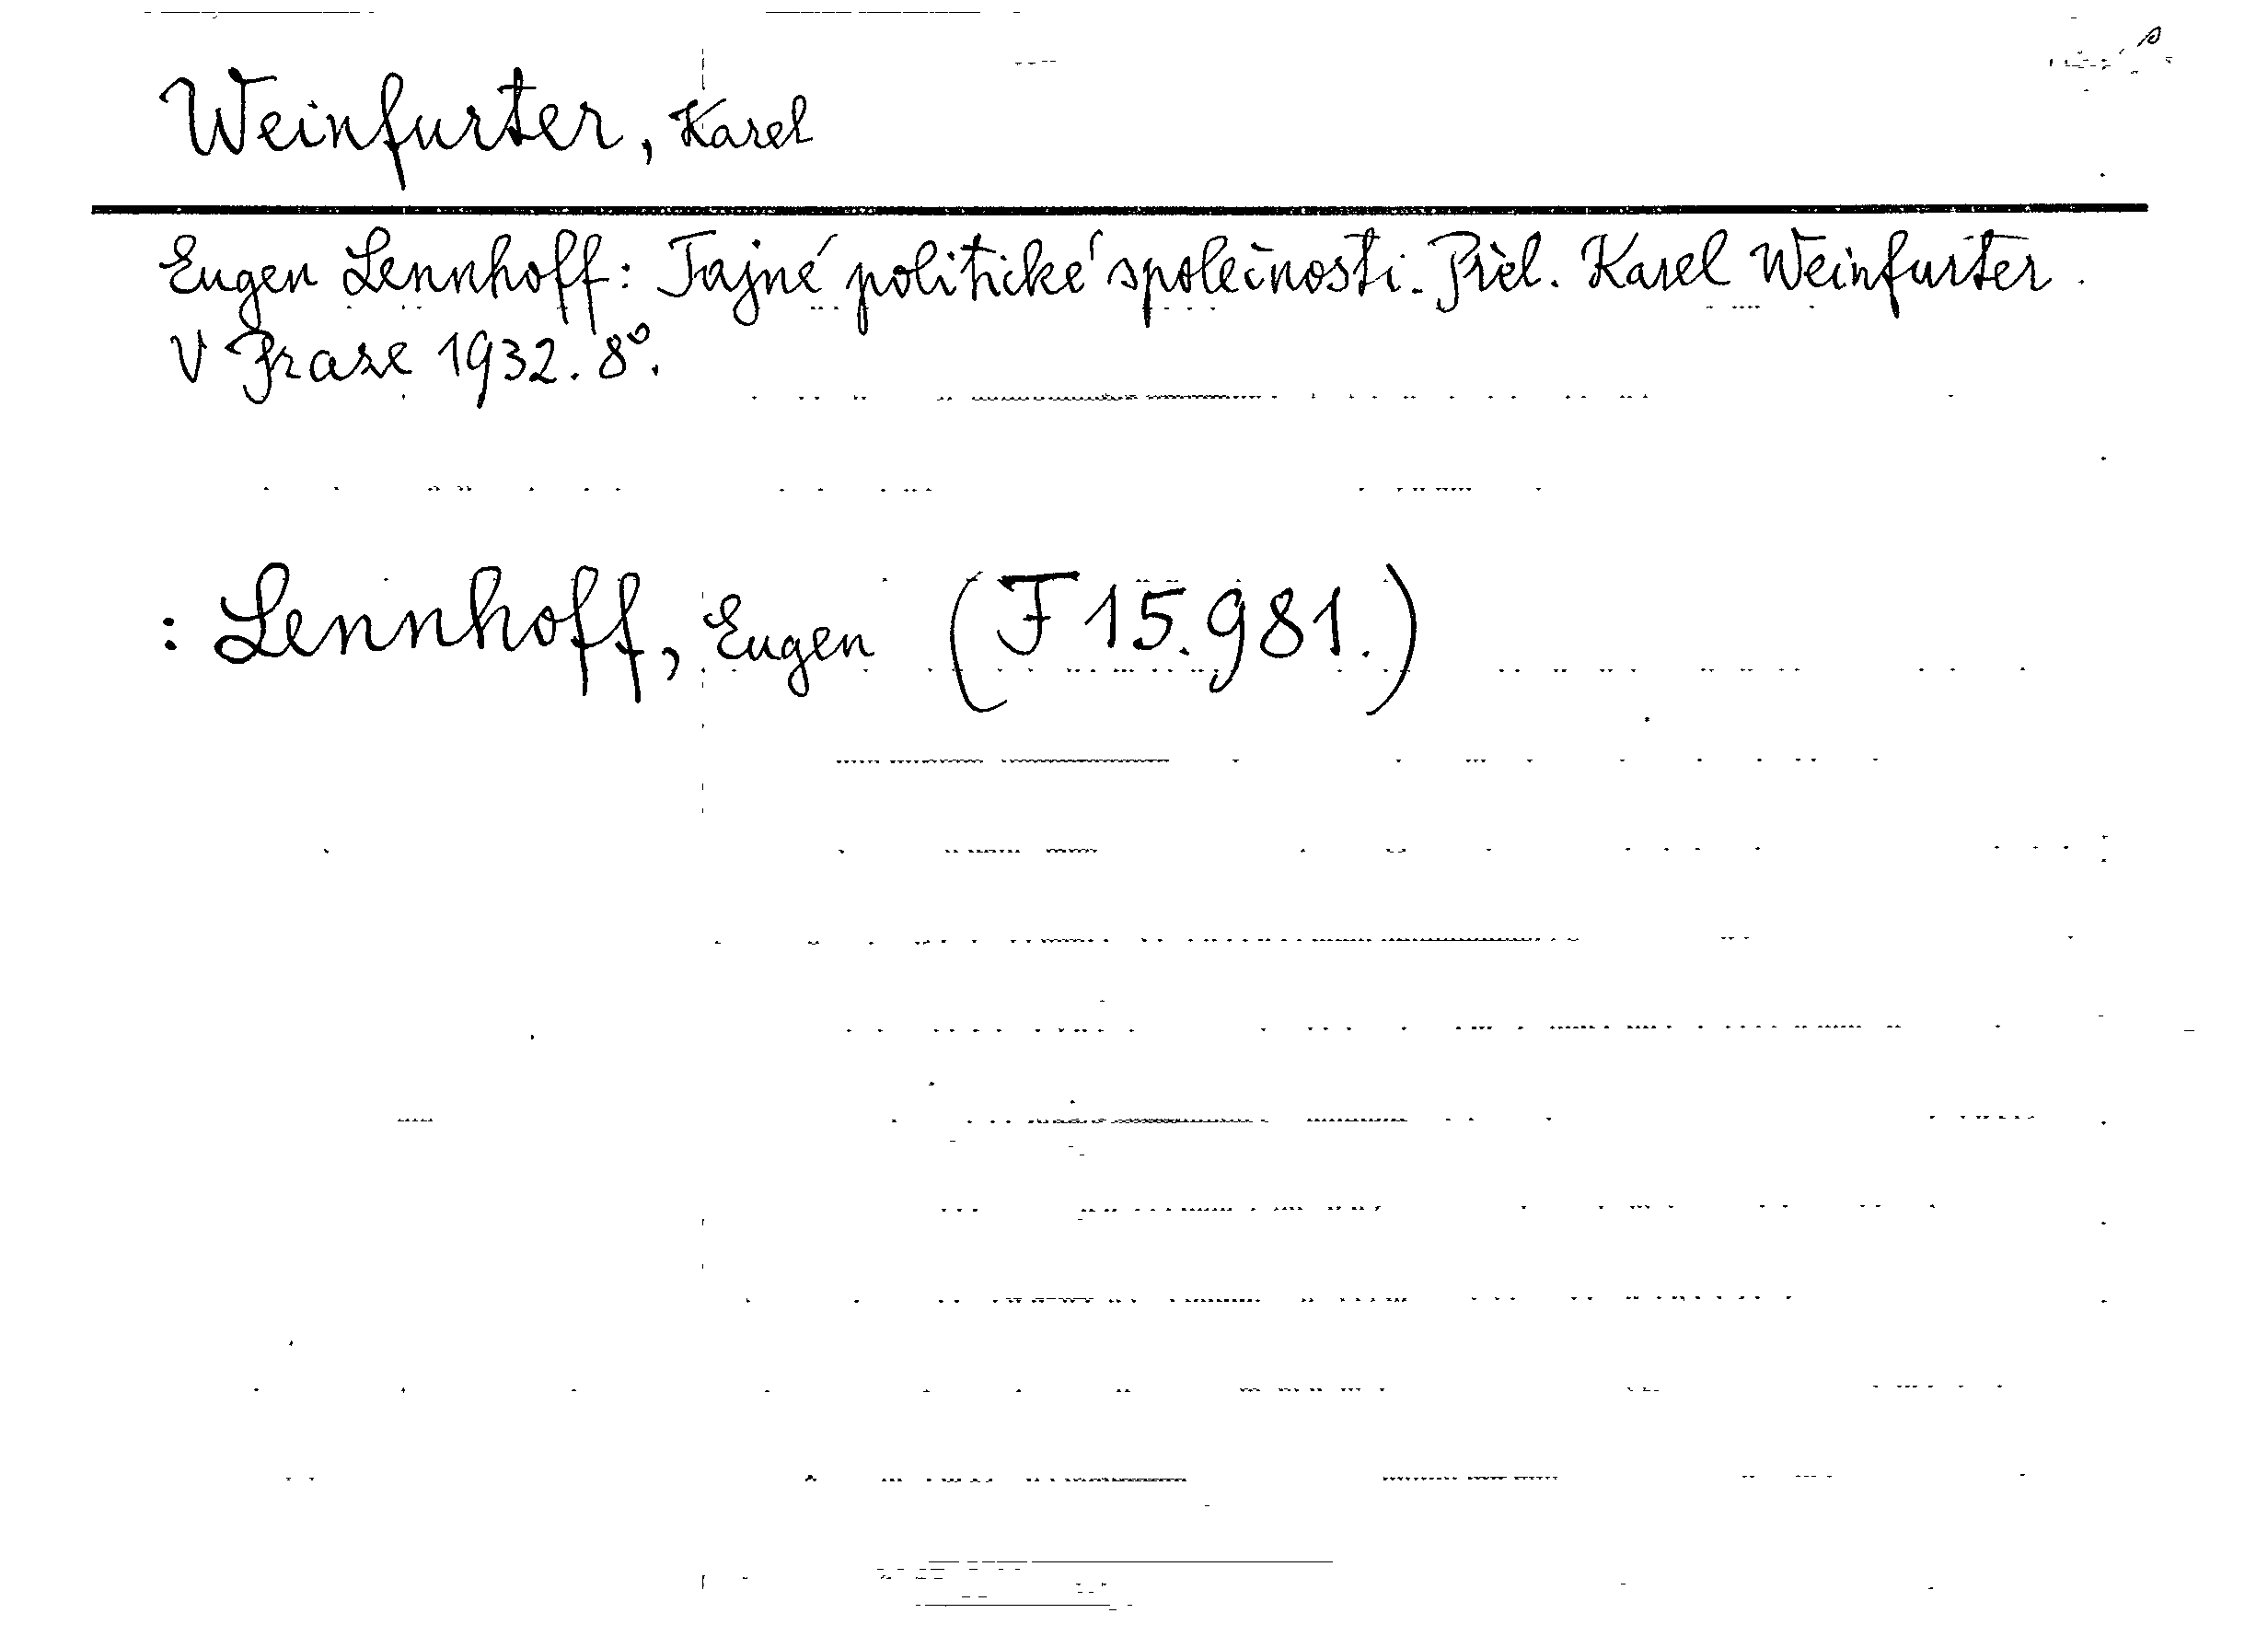 Weinfurter, Karel
Eugen Lennhoff: Tajné politické společnosti. Přel. Karel Weinfurter.
V Praze 1932. 8°.
: Lennhoff, Eugen (F 15.981.)